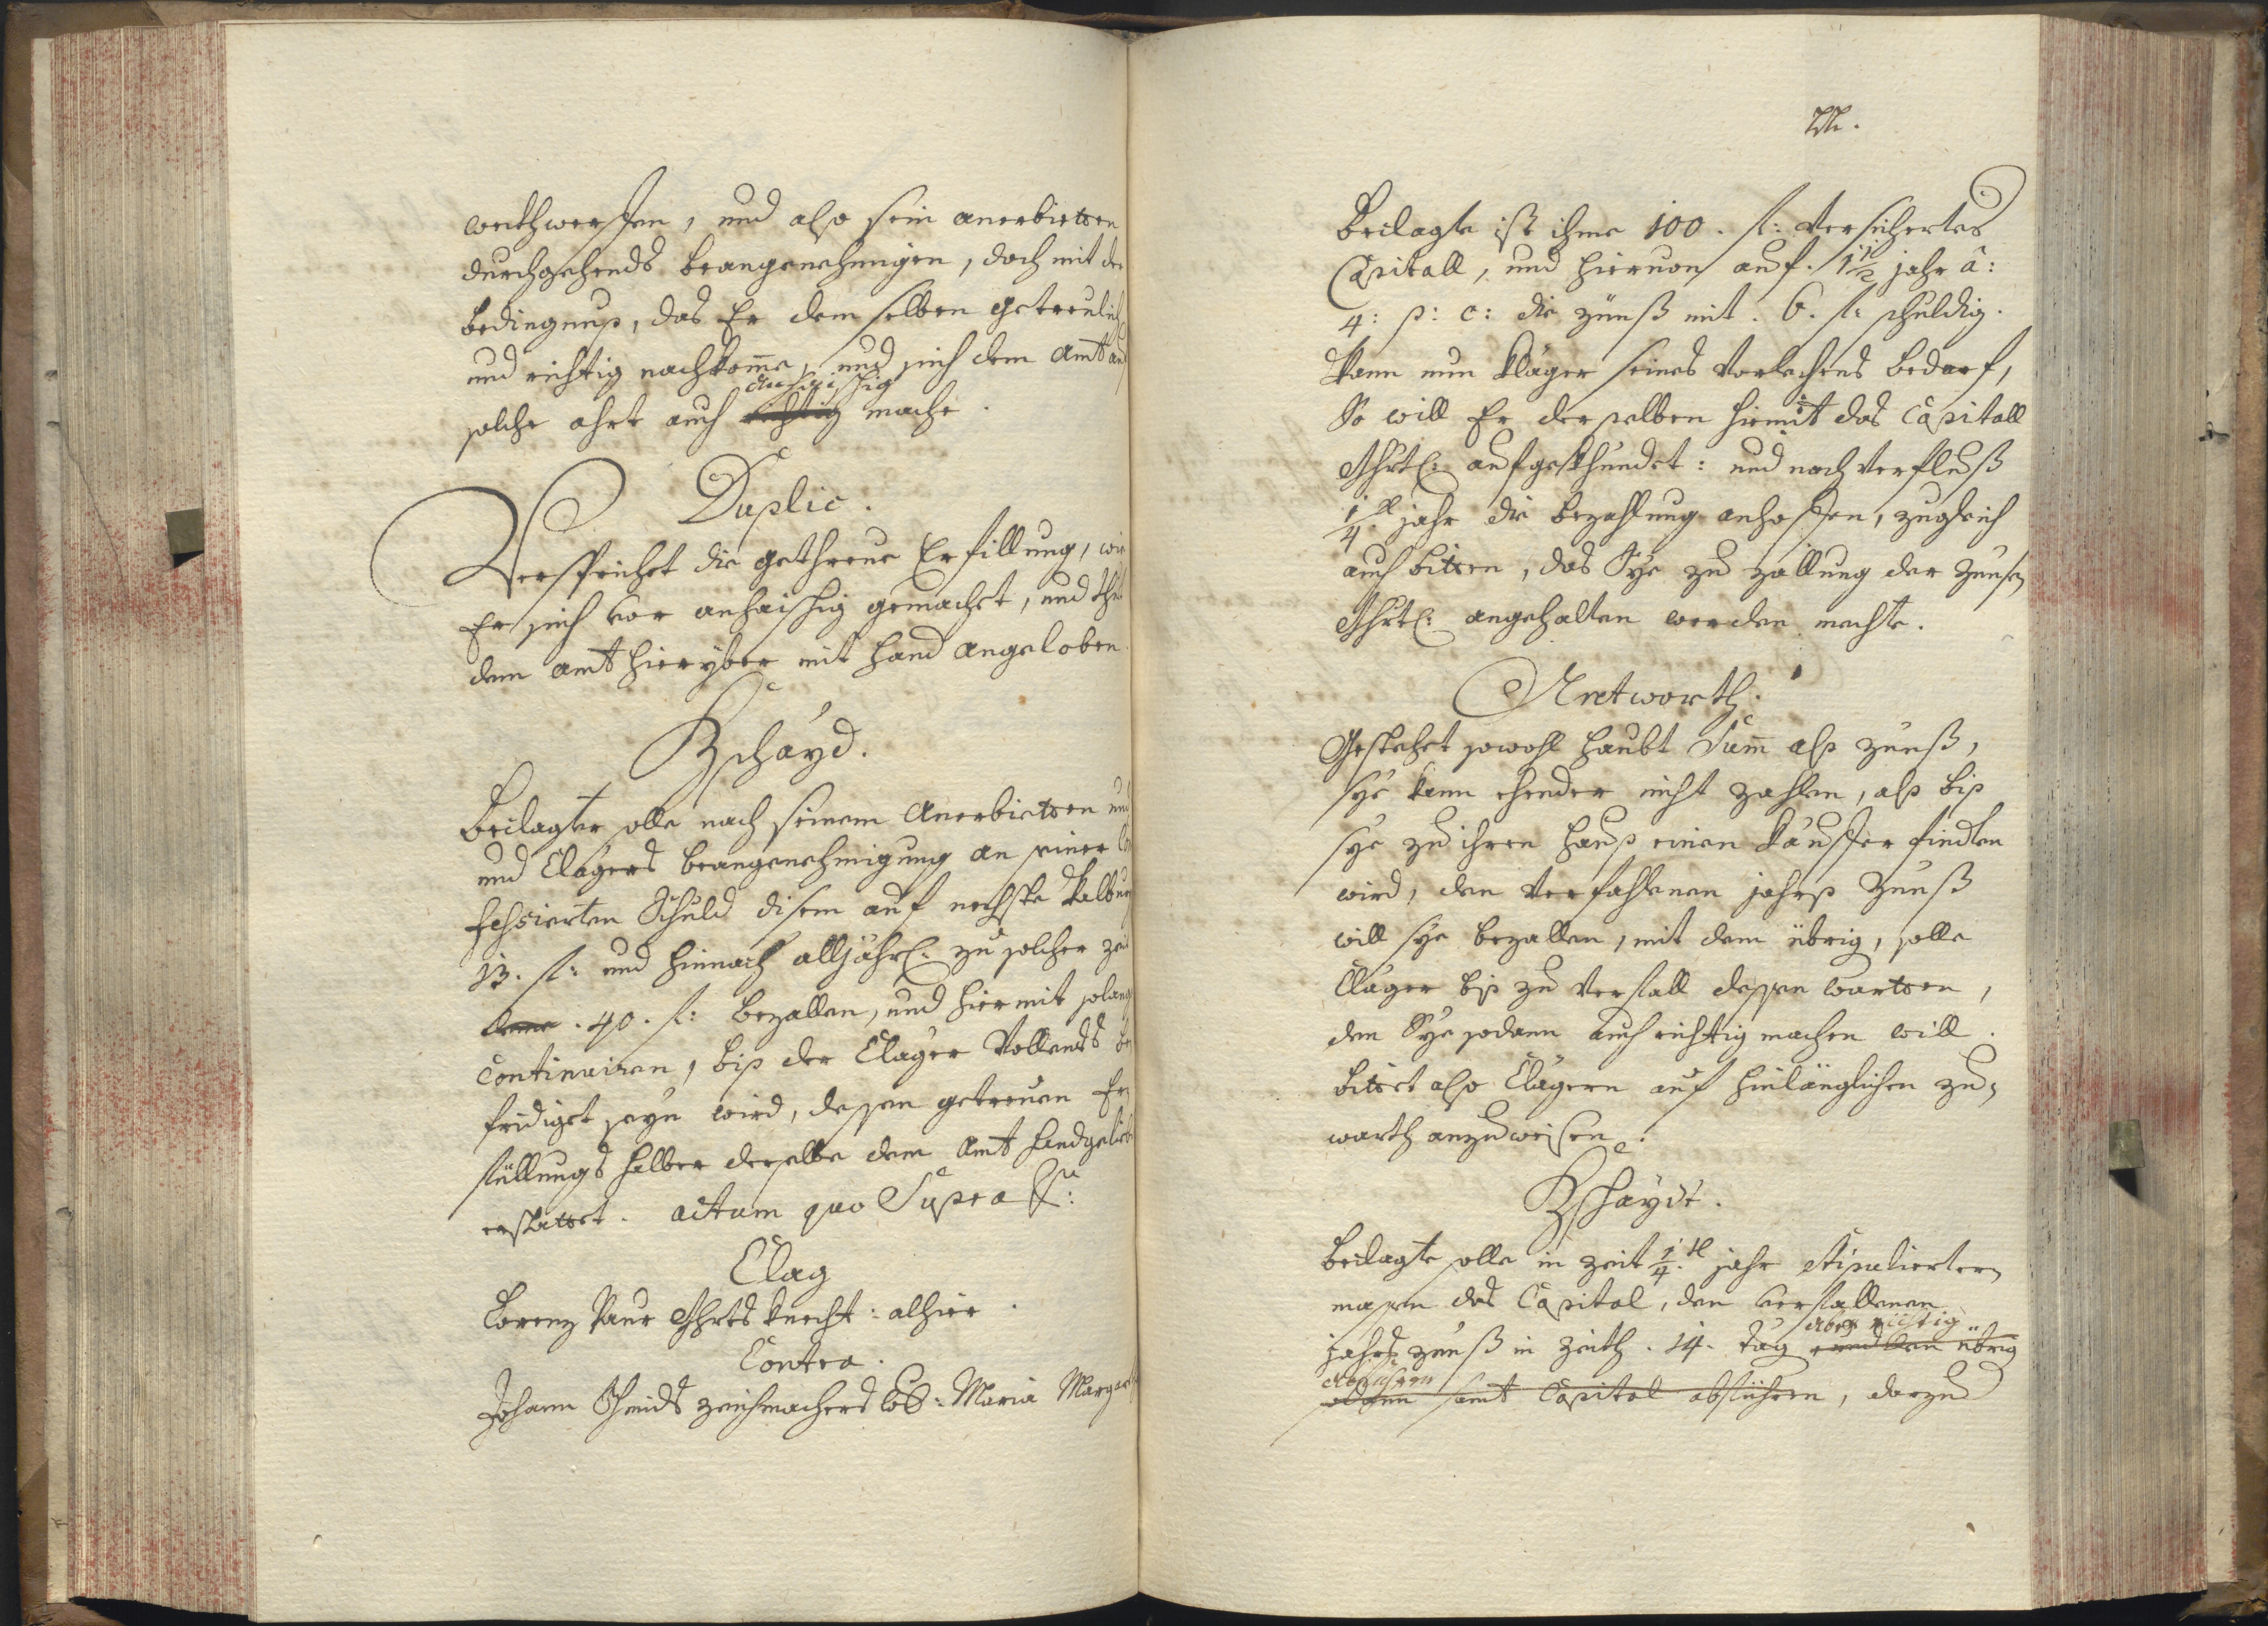 weithwerffen, und also sein anerbietten
durchgehends beangenehmigen, doch mit der
bedingnuß, das Er dem selben getreulich
und richtig nachkom̄e, und sich dem Amt auf
anhaischig
solche ahrt auch richtig mache.
Duplic.
Versprichet die gethreue Erfillung, wie
Er sich vor anhaischig gemachet, und thuet
dem Amt hieryber mit hand angeloben.
Bschayd.
Beclagter solle nach seinem Anerbietten und
und Clagers beangenehmigung an seiner Con
fessierten Schuld disem auf nechste
13. fl: und hinnach alljährl: zu solcher zeit
40. fl: bezallen, und hiermit solang
continuiren, biß der Clager Vollends be
fridiget seyn wird, dessen getreuen Er
füllungs halber derselbe dem Amt handgelibt
erstattet. actum quo Supra
Clag
Lorenz Paur knecht: alhier
Contra.
Johann Schmids zeichmachers Maria Margareth
Beclagte ist ihme 100. fl: Versichertes
Capitall, und hiervon auf. 1 1/2 jahr â:
4: p: c: die zünß mit. 6. fl: schuldig.
Wann nun kläger seines Vorlechens bedarf,
So will Er derselben hiemit das Capitall
aufgekhündet: und nach Verfluß
1/4tl jahr die bezahlung anhoffen, zugleich
auch bitten, das Sye zu zallung der Zünsen
angehalten werden mechte.
Antworth.
Gestehet sowohl haubt Sum̄ alß zünß,
sye kenn ehender nicht zahlen, alß biß
sye zu ihren hauß einen kauffer findten
wird, den Verfahlenen jahrß Zünß
will sye bezallen, mit dem übrig, solle
Clager biß zu Verfall dessen wartten,
den Sye sodann auch richtig machen will.
bittet also Clagern auf hinlänglichen zu=
warth anzuweisen.
Bschaydt.
Beclagte solle in zeit 1/4tl jahr stipulierter=
massen das Capital, den verfallenen
aber
jahrs zünß in zeith. 14. tag und den übrig
abführen
samt Capital abführen, darzu